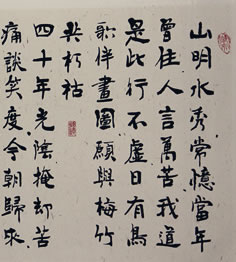 山明水秀常憶當年
曾住人言萬苦我道
是此行不虛日有鳥
歌伴畫圖願與梅竹
共朽枯
四十年光陰掩却苦
痛談笑度今朝歸來